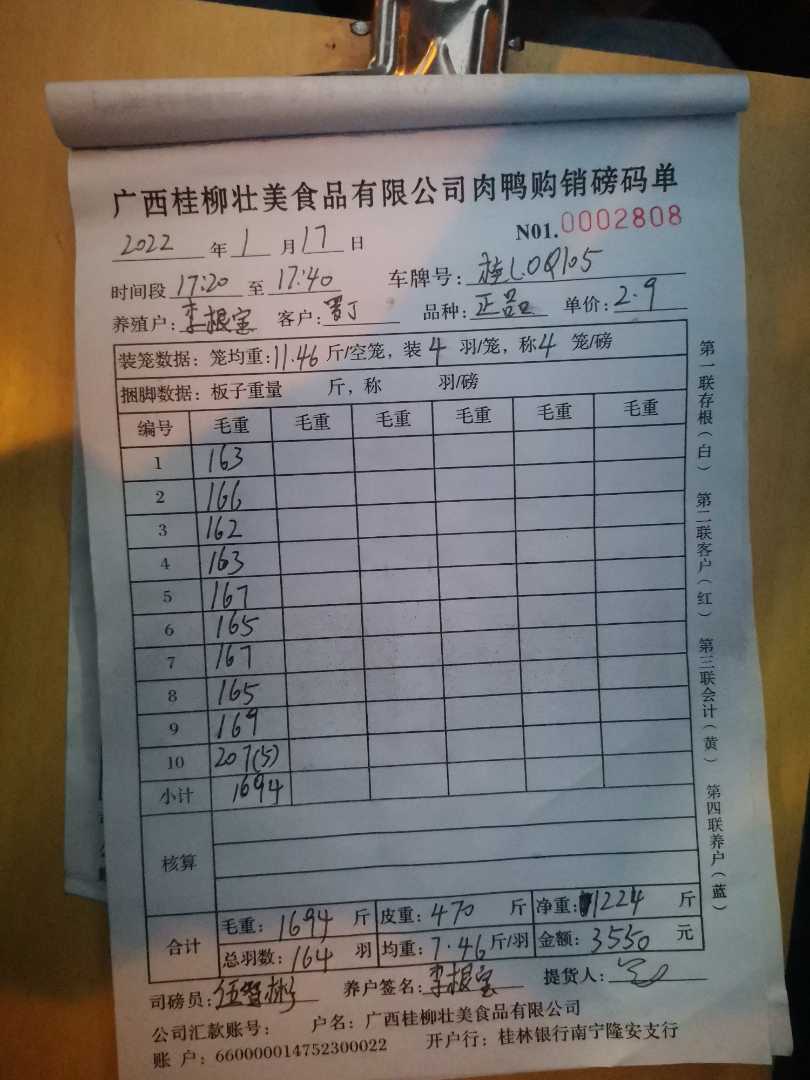 广西桂柳壮美食品有限公司肉鸭购销磅码单
2022 年 1 月 17 日 N01.0002808
时间段 17:20 至 17:40 车牌号: 桂L0Q105
养殖户: 李根宝 客户: 品种: 正品 单价: 2.9
装笼数据: 笼均重: 11.46 斤/空笼, 装 4 羽/笼, 称 4 笼/磅
捆脚数据: 板子重量 斤, 称 羽/磅
编号 毛重 毛重 毛重 毛重 毛重 毛重
1 163
2 166
3 162
4 163
5 167
6 165
7 167
8 165
9 169
10 207(5)
小计 1694
核算
合计 毛重: 1694 斤 皮重: 470 斤 净重: 1224 斤
总羽数: 164 羽 均重: 7.46 斤/羽 金额: 3550 元
司磅员: 养户签名: 李根宝 提货人:
公司汇款账号: 户名: 广西桂柳壮美食品有限公司
账 户: 660000014752300022 开户行: 桂林银行南宁隆安支行
第一联存根(白) 第二联客户(红) 第三联会计(黄) 第四联养户(蓝)